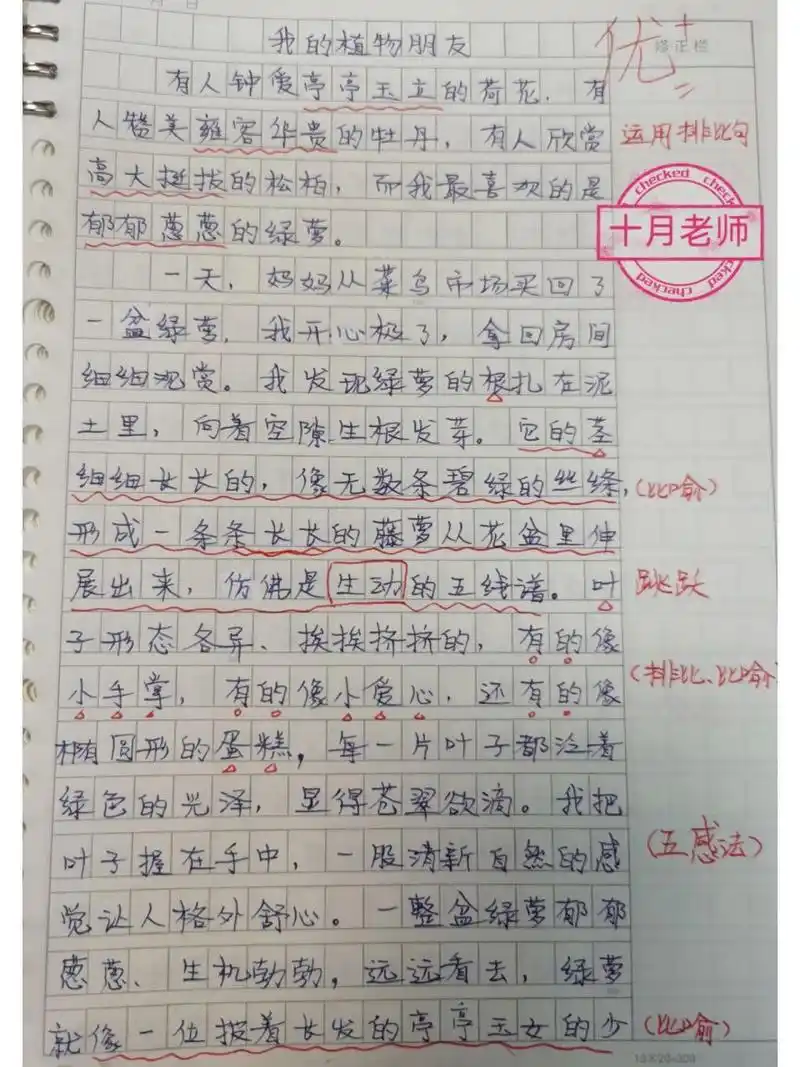 我的植物朋友
优+
修正栏
有人钟爱亭亭玉立的荷花，有
人赞美雍容华贵的牡丹，有人欣赏
运用排比句
高大挺拔的松柏，而我最喜欢的是
郁郁葱葱的绿萝。
checked checked
十月老师
checked checked
一天，妈妈从菜鸟市场买回了
一盆绿萝，我开心极了，拿回房间
细细观赏。我发现绿萝的根扎在泥
土里，向着空隙生根发芽。它的茎
细细长长的，像无数条碧绿的丝绦，
(比喻)
形成一条条长长的藤萝从花盆里伸
展出来，仿佛是生动的五线谱。叶
跳跃
子形态各异、挨挨挤挤的，有的像
(排比、比喻
小手掌，有的像小爱心，还有的像
椭圆形的蛋糕，每一片叶子都泛着
绿色的光泽，显得苍翠欲滴。我把
叶子握在手中，一股清新自然的感
(五感法)
觉让人格外舒心。一整盆绿萝郁郁
葱葱、生机勃勃，远远看去，绿萝
就像一位披着长发的亭亭玉女的少
(比喻)